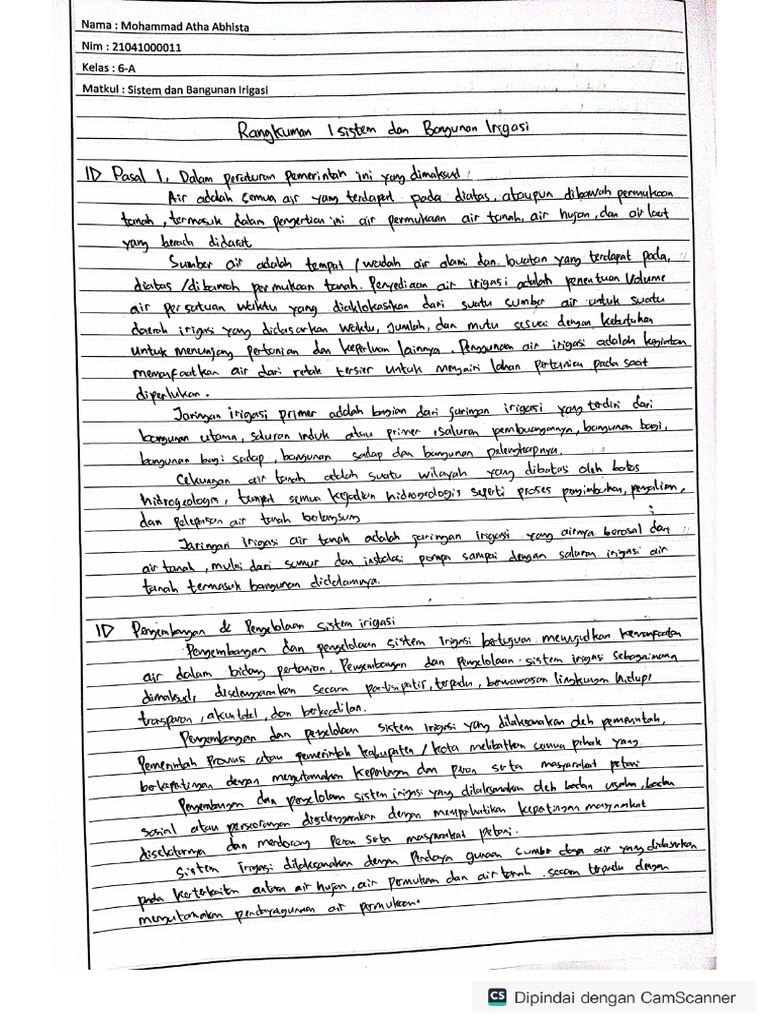 Nama : Mohammad Atha Abhista
Nim : 21041000011
Kelas : 6-A
Matkul : Sistem dan Bangunan Irigasi
Rangkuman 1 sistem dan Bangunan Irigasi
1D Pasal 1, Dalam peraturan pemerintah ini yang dimaksud :
Air adalah semua air yang terdapat pada diatas, ataupun dibawah permukaan
tanah, termasuk dalam pengertian ini air permukaan air tanah, air hujan, dan air laut
yang berada didarat
Sumber air adalah tempat / wadah air alami dan buatan yang terdapat pada,
diatas /dibawah permukaan tanah. Penyediaan air irigasi adalah penentuan Volume
air per satuan waktu yang dialokasikan dari suatu sumber air untuk suatu
daerah irigasi yang didasarkan waktu, Jumlah, dan mutu sesuai dengan kebutuhan
untuk menunjang pertanian dan keperluan lainnya. Penggunaan air irigasi adalah kegiatan
memanfaatkan air dari petak tersier untuk mengairi lahan pertanian pada saat
diperlukan.
Jaringan irigasi primer adalah bagian dari jaringan irigasi yang terdiri dari
bangunan utama, saluran induk atau primer, saluran pembuangannya, bangunan bagi,
bangunan bagi sadap, bangunan sadap dan bangunan pelengkapnya.
Cekungan air tanah adalah suatu wilayah yang dibatas oleh batas
hidrogeologis, tempat semua kejadian hidrogeologis seperti proses pengimbuhan, pengaliran,
dan pelepasan air tanah berlangsung
Jaringan Irigasi air tanah adalah jaringan irigasi yang airnya berasal dari
air tanah, mulai dari sumur dan instalasi pompa sampai dengan saluran irigasi air
tanah termasuk bangunan didalamnya.
1D Pengembangan & Pengelolaan sistem irigasi
Pengembangan dan pengelolaan sistem Irigasi bertujuan mewujudkan kemanfaatan
air dalam bidang pertanian, Pengembangan dan Pengelolaan sistem irigasi sebagaimana
dimaksud, diselenggarakan secara partisipatif, terpadu, berwawasan lingkungan hidup,
transparan, akuntabel, dan berkeadilan.
Pengembangan dan pengelolaan sistem Irigasi yang dilaksanakan oleh pemerintah,
Pemerintah Provinsi atau pemerintah kabupaten / kota melibatkan semua pihak yang
berkepentingan dengan mengutamakan kepentingan dan peran serta masyarakat petani
Pengembangan dan pengelolaan sistem irigasi yang dilaksanakan oleh badan usaha, badan
sosial atau perseorangan diselenggarakan dengan memperhatikan kepentingan masyarakat
disekitarnya dan mendorong Peran serta masyarakat petani.
Sistem Irigasi dilaksanakan dengan Pendaya gunaan sumber daya air yang didasarkan
pada keterkaitan antara air hujan, air permukaan dan air tanah secara terpadu dengan
mengutamakan pendayagunaan air permukaan.
CS Dipindai dengan CamScanner